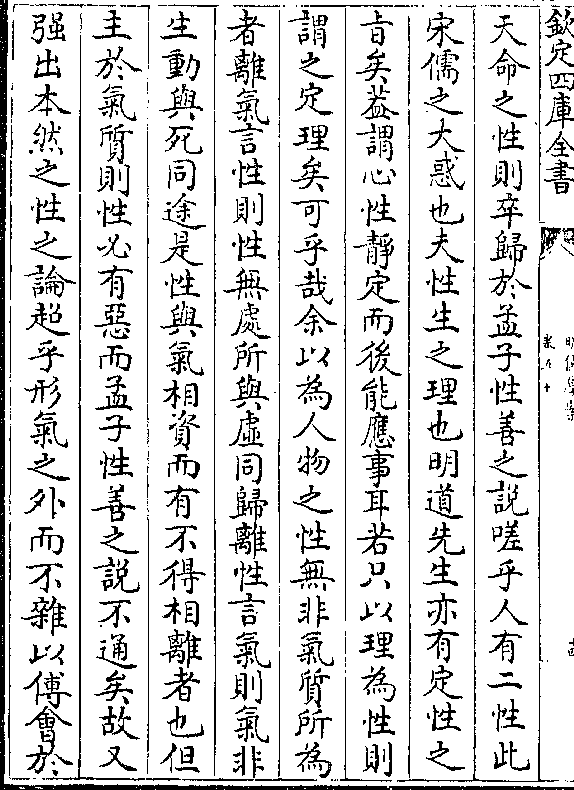 欽定四庫全書
天命之性則卒歸於孟子性善之說嗟乎人有二性此
宋儒之大惑也夫性生之理也明道先生亦有定性之
㫖矣葢謂心性靜定而後能應事耳若只以理為性則
謂之定理矣可乎哉余以為人物之性無非氣質所為
者離氣言性則性無處所與虛同歸離性言氣則氣非
生動與死同途是性與氣相資而有不得相離者也但
主於氣質則性必有惡而孟子性善之說不通矣故又
强出本然之性之論超乎形氣之外而不雜以傅會於